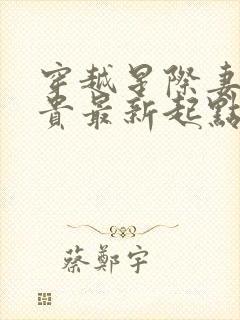 穿越星際妻
貴最新起點
蔡鄭宇